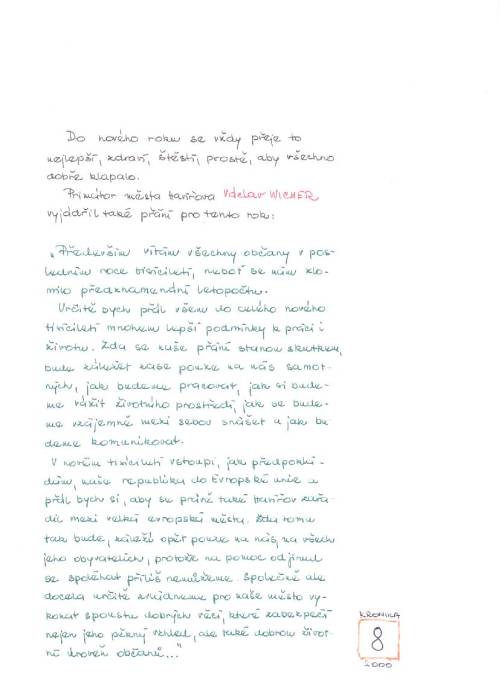 Do nového roku se vždy přeje to
nejlepší, zdraví, štěstí, prostě, aby všechno
dobře klapalo.
Primátor města Havířova Václav WICHER
vyjádřil také přání pro tento rok:
„Především vítám všechny občany v pos-
ledním roce tisíciletí, neboť se nám zlo-
milo předznamenání letopočtu.
Určitě bych přál všem do celého nového
tisíciletí mnohem lepší podmínky k práci i
životu. Zda se naše přání stanou skutkem,
bude záležet zase pouze na nás samot-
ných, jak budeme pracovat, jak si bude-
me vážit životního prostředí, jak se bude-
me vzájemně mezi sebou snášet a jak bu-
deme komunikovat.
V novém tisíciletí vstoupí, jak předpoklá-
dám, naše republika do Evropské unie a
přál bych si, aby se právě také Havířov zařa-
dil mezi velká evropská města. Zda tomu
tak bude, záleží opět pouze na nás, na všech
jeho obyvatelích, protože na pomoc odjinud
se spoléhat příliš nemůžeme. Společně ale
docela určitě zvládneme pro naše město vy-
konat spoustu dobrých věcí, které zabezpečí
nejen jeho pěkný vzhled, ale také dobrou život-
ní úroveň občanů..."
KRONIKA
8
2000